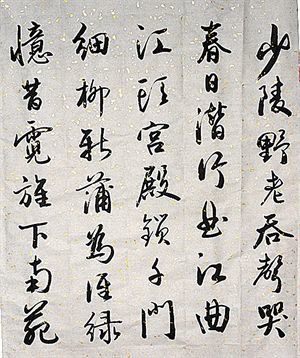 少陵野老吞聲哭
春日潛行曲江曲
江頭宮殿鎖千門
細柳新蒲為誰綠
憶昔霓旌下南苑